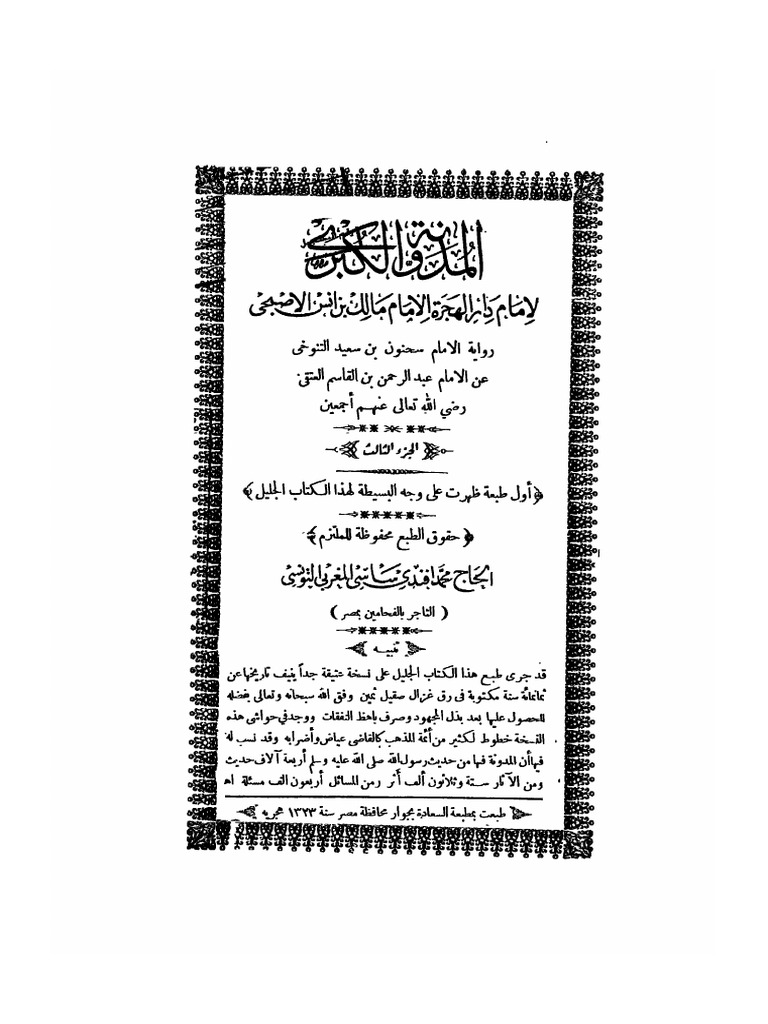 المدونة الكبرى
لإمام دار الهجرة الإمام مالك بن أنس الأصبحى
رواية الامام سحنون بن سعيد التنوخى
عن الامام عبد الرحمن بن القاسم العتقى
رضي الله تعالى عنهم أجمعين
الجزء الثالث
﴿أول طبعة ظهرت على وجه البسيطة لهذا الكتاب الجليل﴾
﴿حقوق الطبع محفوظة للملتزم﴾
الحاج محمد افندى ساسى المغربى التونسى
( التاجر بالفحامين بمصر )
تنبيه
قد جرى طبع هذا الكتاب الجليل على نسخة عتيقة جداً ينيف تاريخها عن
ثمانمائة سنة مكتوبة فى رق غزال صقيل ثمين وفق الله سبحانه وتعالى بفضله
للحصول عليها بعد بذل المجهود وصرف باهظ النفقات ووجد فى حواشى هذه
النسخة خطوط لكثير من أئمة المذهب كالقاضى عياض وأضرابه وقد نسب له
فيها أن المدونة فيها من حديث رسول الله صلى الله عليه وسلم أربعة آلاف حديث
ومن الآثار ستة وثلاثون ألف أثر ومن المسائل أربعون الف مسئلة اه
طبعت بمطبعة السعادة بجوار محافظة مصر سنة ١٣٢٣ هجريه